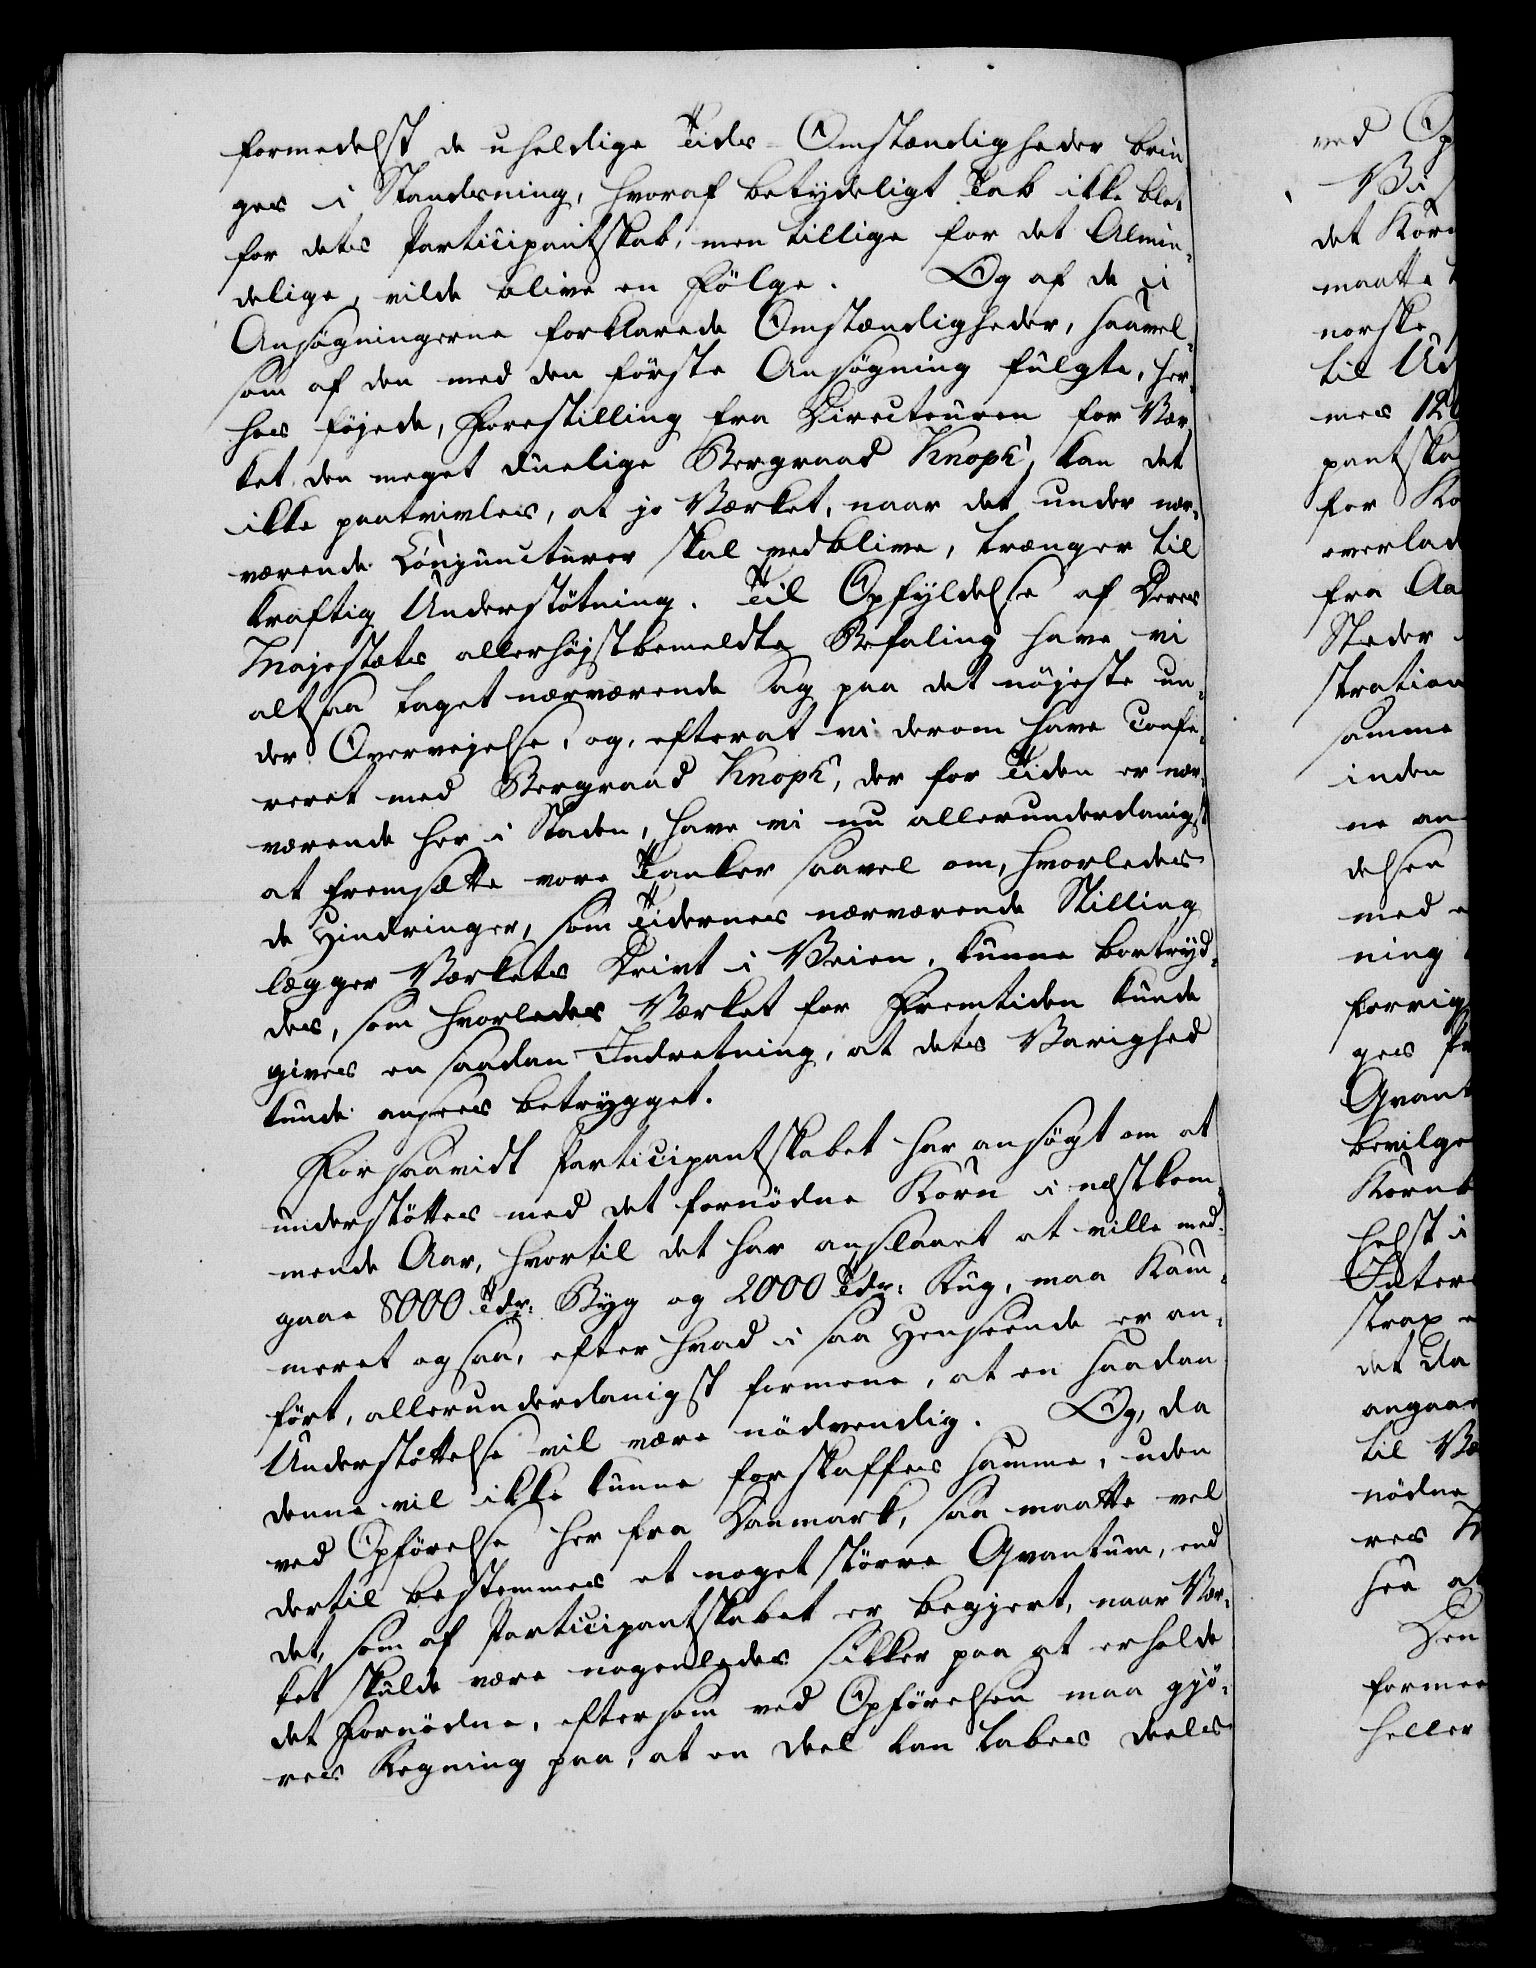 formedelst de uheldige Tids-Omstændigheder brin
ges i Standsning, hvoraf betydeligt Tab ikke blot
for dets Participantskab, men tillige for det Almin-
delige, vilde blive en Følge. Og af de i
Ansøgningerne forklarede Omstændigheder, saavel
som af den med den første Ansøgning fulgte, her-
hos føjede, Forestilling fra Directeuren for Vær-
ket den meget duelige Bergraad Knoph, kan det
ikke paatvivles, at jo Værket, naar det under nær-
værende Conjuncturer skal vedblive, trænger til
kraftig Understøtning. Til Opfyldelse af Deres
Majestæts allerhøjstbemeldte Befaling have vi
altsaa taget nærværende Sag paa det nøjeste un-
der Overvejelse, og, efterat vi derom have confe-
reret med Bergraad Knoph, der for Tiden er nær-
værende her i Staden, have vi nu allerunderdanigst
at fremsætte vore Tanker saavel om, hvorledes
de Hindringer, som Tidernes nærværende Stilling
lægger Værkets Drivt i Veien, kunne bortryd-
des, som hvorledes Værket for Fremtiden kunde
gives en saadan Indretning, at dets Varighed
kunde ansees betrygget.
Forsaavidt Participantskabet har ansøgt om at
understøttes med det fornødne Korn i næstkom-
mende Aar, hvortil det har anslaaet at ville med-
gaae 8000 Tdr. Byg og 2000 Tdr. Rug, maa Kam-
meret ogsaa, efter hvad i saa Henseende er an-
ført, allerunderdanigst formene, at en saadan
Understøttelse vil være nødvendig. Og, da
denne vil ikke kunne forskaffes samme, uden
ved Opførelse her fra Danmark, saa maatte vel
dertil bestemmes et noget større Qvantum, end
det, som af Participantskabet er begjert, naar Vær-
ket skulde være nogenledes sikker paa at erholde
det Fornødne, eftersom ved Opførelsen maa gjø-
res Regning paa, at en Deel kan tabes deels
ved Op
Vi
det Korn
maatte
norske
til Ud
mes 120
pantska
for Ko
overlad
fra Aa
Stæder
stration
samme
inden
ne an
delsen
med
ning
forrig
ges
Qvant
bevilge
Kornt
helst i
Inter
strax
det da
angaae
til Væ
nødne
res
see at
Den
formee
heller